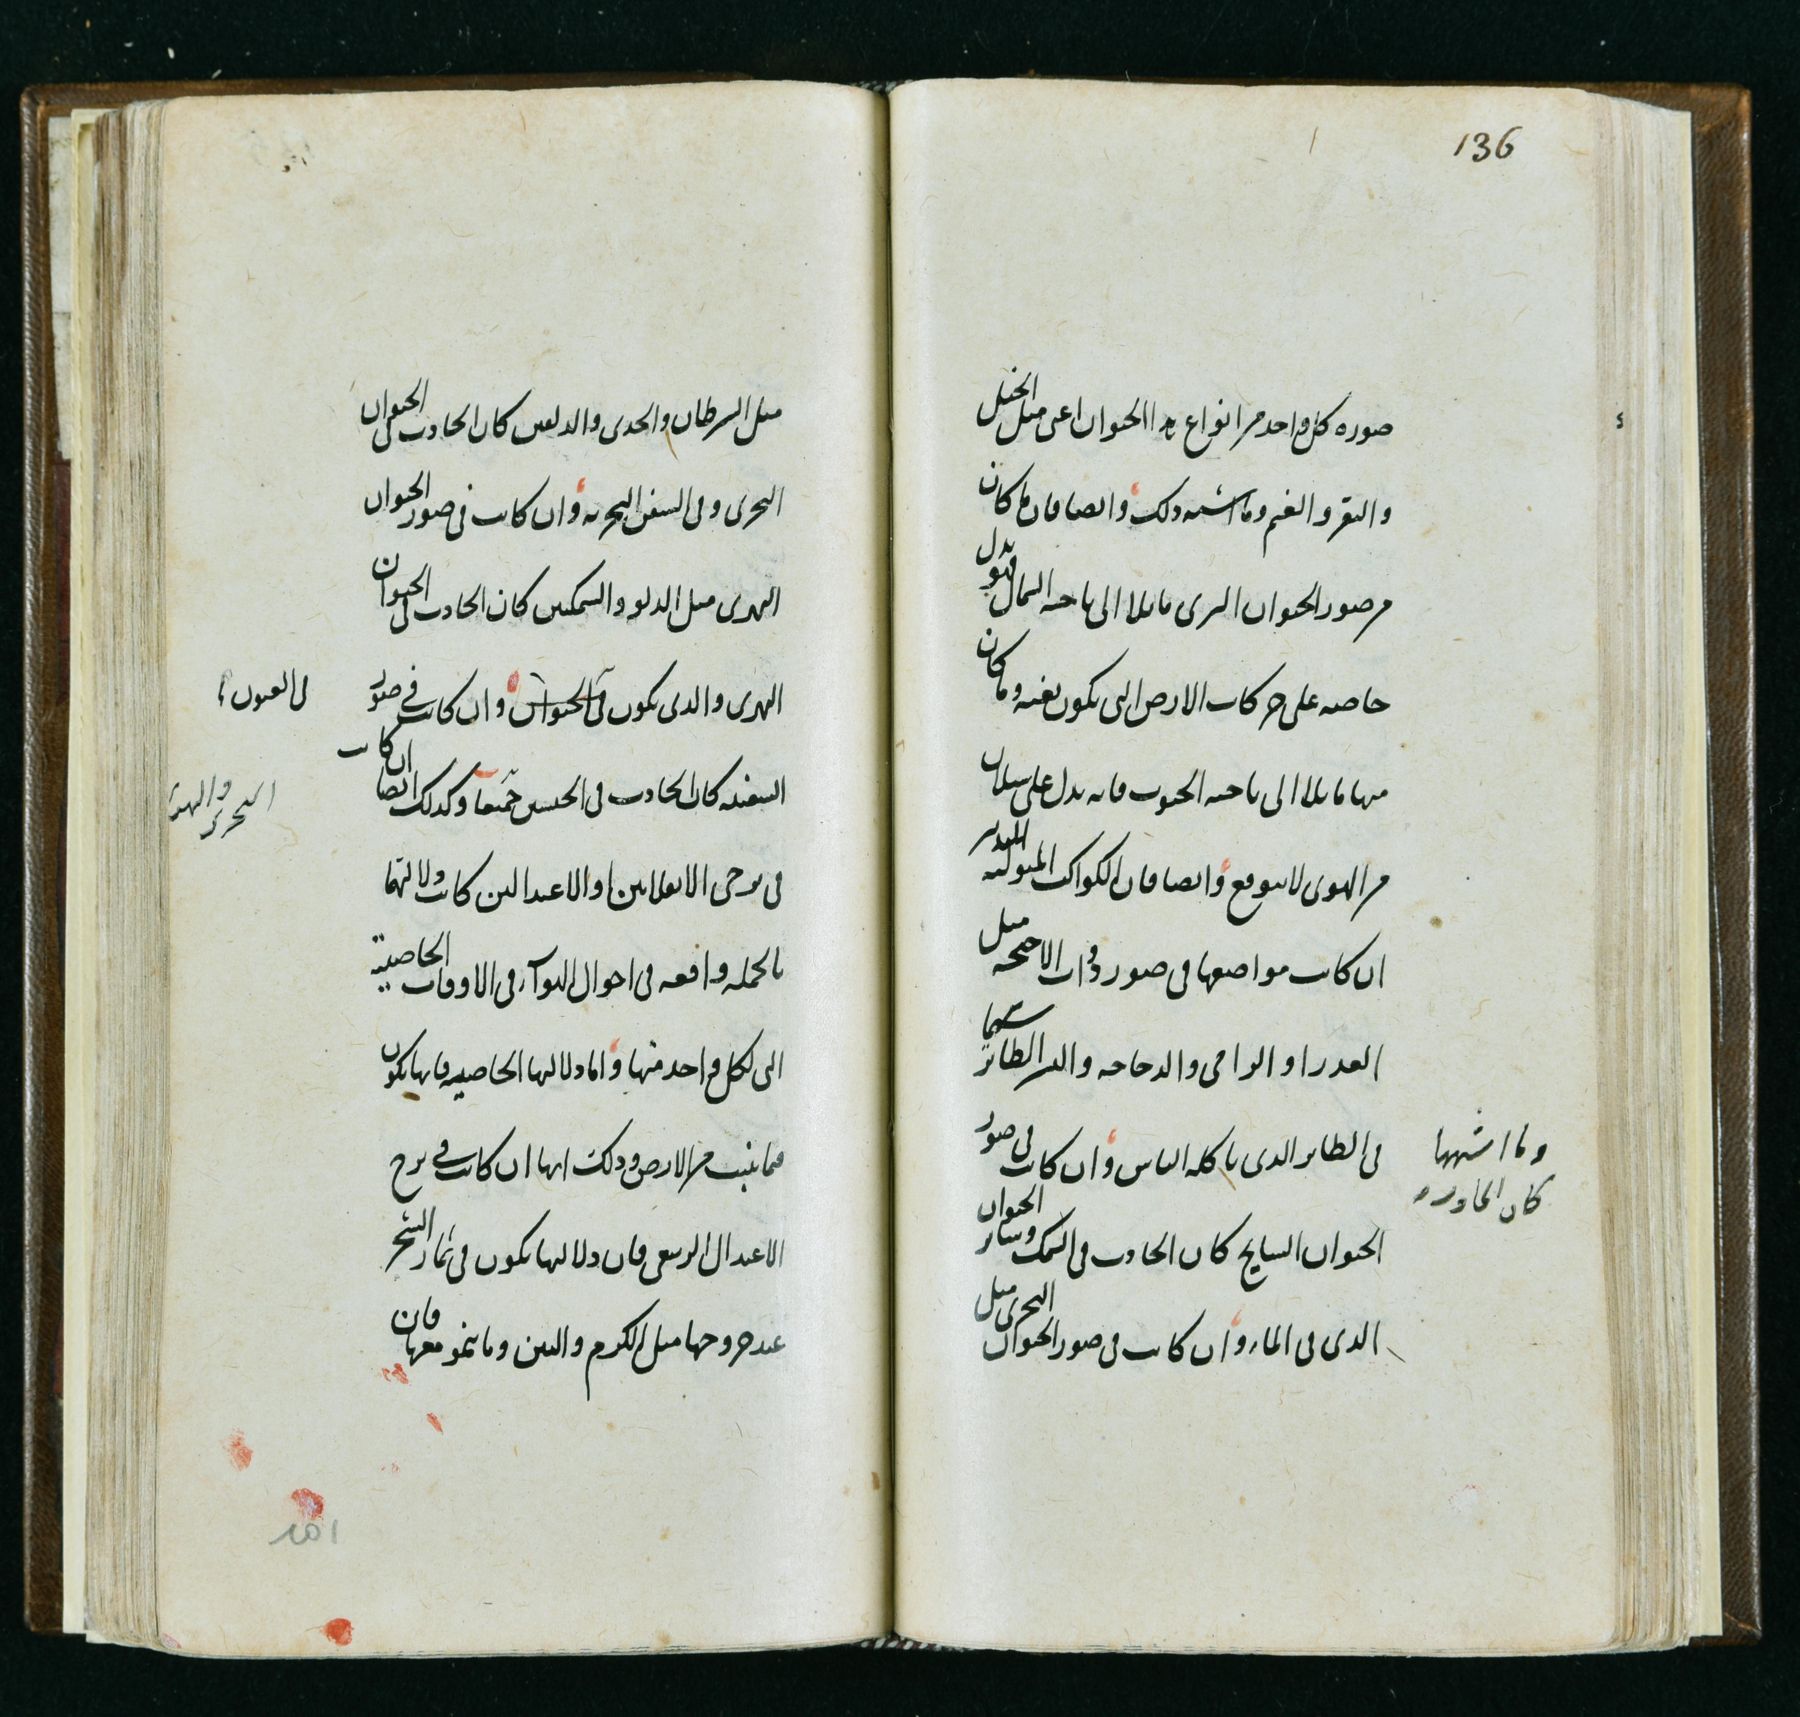 136
صوره كل واحد من انواع هذا الحيوان اعنى مثل الخيل
والبقر والغنم وما اشبه ذلك وايضا فان ما كان
من صور الحيوان البرى مايلا الى ناحيه الشمال فهو يدل
خاصه على حركات الارض التى تكون بغته وما كان
منها مايلا الى ناحيه الجنوب فانه يدل على سيلان
من الهوى لا يتوقع وايضا فان الكواكب المتوليه التدبير
ان كانت مواضعها فى صور ذوات الاجنحه مثل
العذرا والرامى والدجاجه والنسر الطائر
فى الطائر الذى ياكله الناس وان كانت فى صور
وما اشبهها
كان الحادث
الحيوان السابح كان الحادث فى السمك وسائر الحيوان
الذى فى الماء وان كانت فى صور الحيوان البحرى مثل
مثل السرطان والجدى والدلفين كان الحادث فى الحيوان
البحرى وفى السفن البحريه وان كانت فى صور الحيوان
النهرى مثل الدلو والسمكتين كان الحادث فى الحيوان
النهرى والذى يكون فى الحيوان وان كانت فى صور
فى العيون
السفينه كان الحادث فى الجنسين جميعا وكذلك ايضا ان كانت
البحرى والنهرى
فى برجى الانقلابين او الاعتدالين كانت دلالتها
بالجمله واقعه فى احوال الهوآء فى الاوقات الخاصيه
التى لكل واحد منها واما دلالتها الخاصيه فانها تكون
فيما ينبت من الارض وذلك انها ان كانت فى برج
الاعتدال الربيعى فان دلالتها تكون فى ثمار الشجر
عند خروجها مثل الكرم والتين وما ينمو معها فان